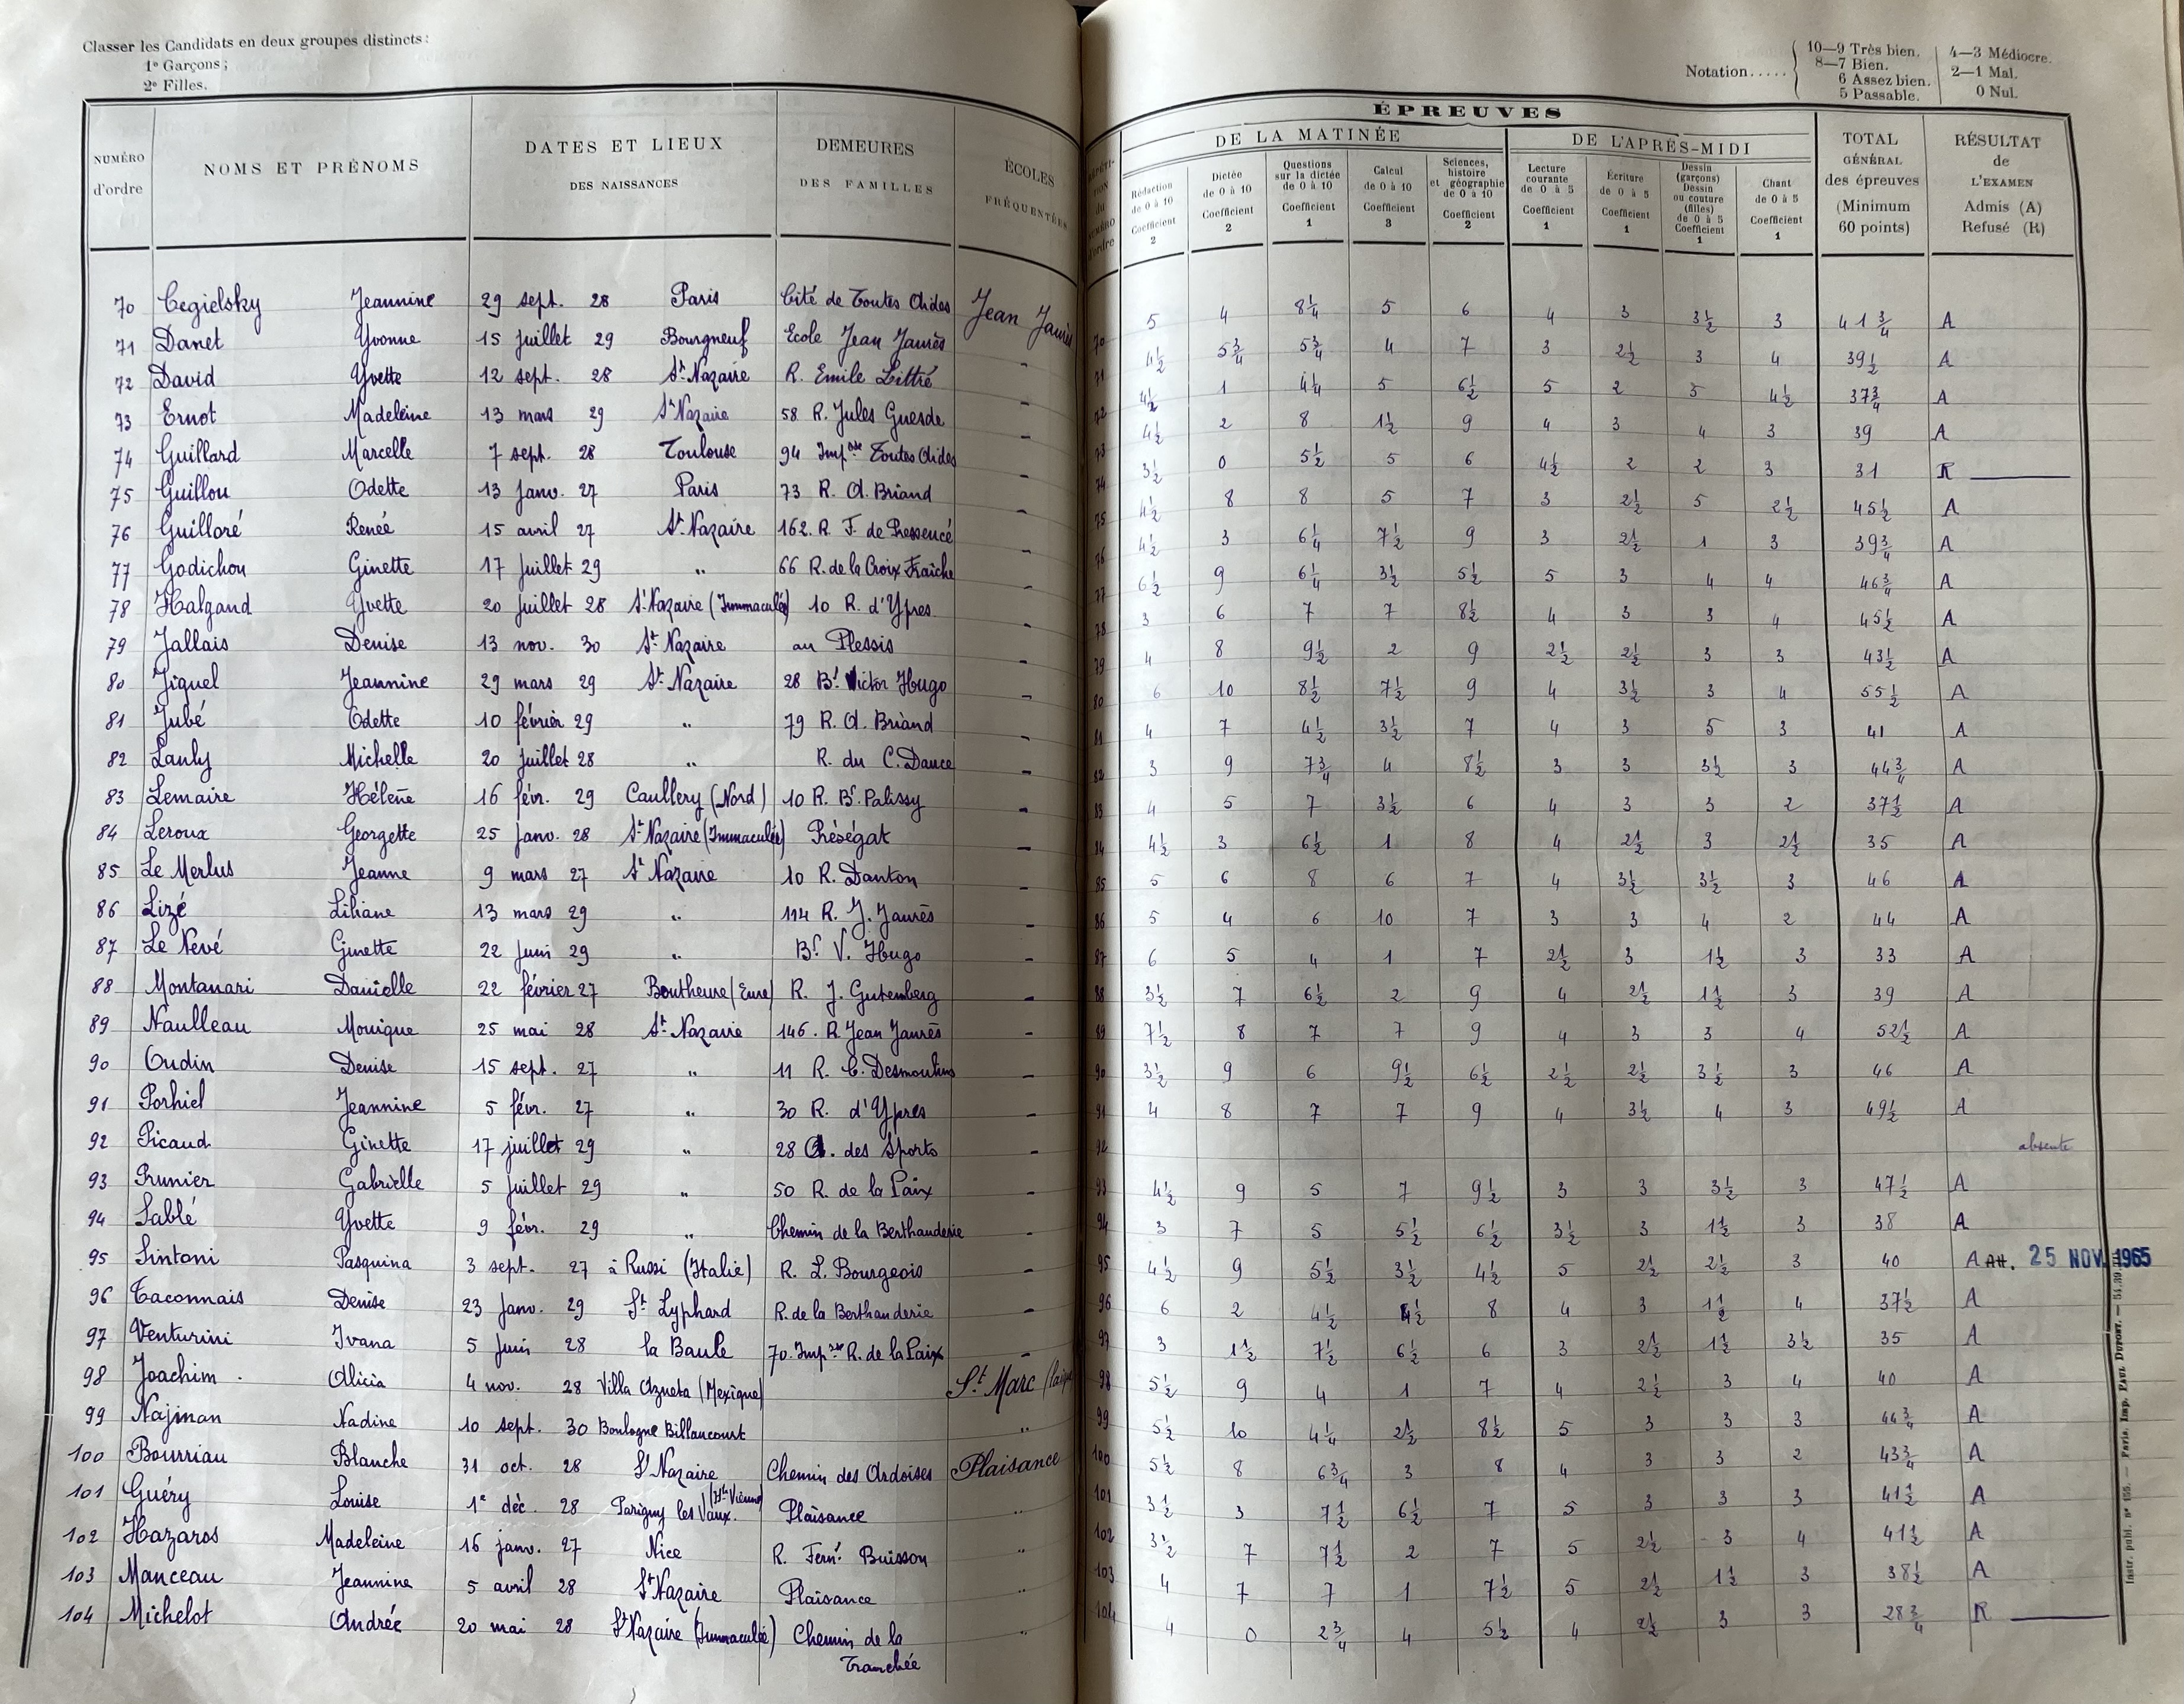 Classer les Candidats en deux groupes distincts :
1º Garçons ;
2º Filles.
Notation.....
10—9 Très bien.
8—7 Bien.
6 Assez bien.
5 Passable.
4—3 Médiocre.
2—1 Mal.
0 Nul.
NUMÉRO d'ordre
NOMS ET PRÉNOMS
DATES ET LIEUX DES NAISSANCES
DEMEURES DES FAMILLES
ÉCOLES FRÉQUENTÉES
ÉPREUVES
DE LA MATINÉE
DE L'APRÈS-MIDI
Rédaction de 0 à 10 Coefficient 2
Dictée de 0 à 10 Coefficient 2
Questions sur la dictée de 0 à 10 Coefficient 1
Calcul de 0 à 10 Coefficient 3
Sciences, histoire et géographie de 0 à 10 Coefficient 2
Lecture courante de 0 à 5 Coefficient 1
Écriture de 0 à 5 Coefficient 1
Dessin (garçons) Dessin ou couture (filles) de 0 à 5 Coefficient 1
Chant de 0 à 5 Coefficient 1
TOTAL GÉNÉRAL des épreuves (Minimum 60 points)
RÉSULTAT de L'EXAMEN Admis (A) Refusé (R)
70 Cegielsky Jeannine 29 sept. 28 Paris Cité de Toutes Aides Jean Jaurès 70 5 4 8¼ 5 6 4 3 3½ 3 41¾ A
71 Danet Yvonne 15 juillet 29 Bourgneuf Ecole Jean Jaurès - 71 4½ 5¾ 5¾ 4 7 3 2½ 3 4 39½ A
72 David Yvette 12 sept. 28 St. Nazaire R. Emile Littré - 72 4½ 1 4¼ 5 6½ 5 2 5 4½ 37¾ A
73 Ernot Madeleine 13 mars 29 St Nazaire 58 R. Jules Guesde - 73 4½ 2 8 1½ 9 4 3 4 3 39 A
74 Guillard Marcelle 7 sept. 28 Toulouse 94 Impsse Toutes Aides - 74 3½ 0 5½ 5 6 4½ 2 2 3 31 R
75 Guillou Odette 13 janv. 27 Paris 73 R. A. Briand - 75 4½ 8 8 5 7 3 2½ 5 2½ 45½ A
76 Guilloré Renée 15 avril 27 St. Nazaire 162. R. F. de Pressencé - 76 4½ 3 6¼ 7½ 9 3 2½ 1 3 39¾ A
77 Godichou Ginette 17 juillet 29 " 66 R. de la Croix Fraîche - 77 6½ 9 6¼ 3½ 5½ 5 3 4 4 46¾ A
78 Halgand Yvette 20 juillet 28 St Nazaire (Immaculée) 10 R. d'Ypres - 78 3 6 7 7 8½ 4 3 3 4 45½ A
79 Jallais Denise 13 nov. 30 St. Nazaire au Plessis - 79 4 8 9½ 2 9 2½ 2½ 3 3 43½ A
80 Jiquel Jeannine 29 mars 29 St. Nazaire 28 Bd Victor Hugo - 80 6 10 8½ 7½ 9 4 3½ 3 4 55½ A
81 Jubé Odette 10 février 29 " 79 R. A. Briand - 81 4 7 4½ 3½ 7 4 3 5 3 41 A
82 Lanly Michelle 20 juillet 28 " R. du C. Dance - 82 3 9 7¾ 4 8½ 3 3 3½ 3 44¾ A
83 Lemaire Hélène 16 févr. 29 Caullery (Nord) 10 R. Bd. Palissy - 83 4 5 7 3½ 6 4 3 3 2 37½ A
84 Leroux Georgette 25 janv. 28 St. Nazaire (Immaculée) Préségat - 84 4½ 3 6½ 1 8 4 2½ 3 2½ 35 A
85 Le Merlus Jeanne 9 mars 27 St Nazaire 10 R. Danton - 85 5 6 8 6 7 4 3½ 3½ 3 46 A
86 Lizé Liliane 13 mars 29 " 114 R. J. Jaurès - 86 5 4 6 10 7 3 3 4 2 44 A
87 Le Nevé Ginette 22 juin 29 " Bd V. Hugo - 87 6 5 4 1 7 2½ 3 1½ 3 33 A
88 Montanari Danielle 22 février 27 (Eure) R. J. Gutemberg - 88 3½ 7 6½ 2 9 4 2½ 1½ 3 39 A
89 Naulleau Monique 25 mai 28 St. Nazaire 146. R. Jean Jaurès - 89 7½ 8 7 7 9 4 3 3 4 52½ A
90 Oudin Denise 15 sept. 27 " 11 R. C. Desmoulins - 90 3½ 9 6 9½ 6½ 2½ 2½ 3½ 3 46 A
91 Porhiel Jeannine 5 févr. 27 " 30 R. d'Ypres - 91 4 8 7 7 9 4 3½ 4 3 49½ A
92 Picaud Ginette 17 juillet 29 " 28 A. des Sports - 92 absente
93 Prunier Gabrielle 5 juillet 29 " 50 R. de la Paix - 93 4½ 9 5 7 9½ 3 3 3½ 3 47½ A
94 Sablé Yvette 9 févr. 29 " Chemin de la Berthauderie - 94 3 7 5 5½ 6½ 3½ 3 1½ 3 38 A
95 Sintoni Pasquina 3 sept. 27 à Russi (Italie) R. L. Bourgeois - 95 4½ 9 5½ 3½ 4½ 5 2½ 2½ 3 40 A Att. 25 NOV. 1965
96 Taconnais Denise 23 janv. 29 St. Lyphard R. de la Berthauderie - 96 6 2 4½ 4½ 8 4 3 1½ 4 37½ A
97 Venturini Ivana 5 juin 28 la Baule 70. Impsse R. de la Paix - 97 3 1½ 7½ 6½ 6 3 2½ 1½ 3½ 35 A
98 Joachim . Alicia 4 nov. 28 Villa Azueta (Mexique) St. Marc 98 5½ 9 4 1 7 4 2½ 3 4 40 A
99 Najman Nadine 10 sept. 30 Boulogne Billancourt " 99 5½ 10 4¼ 2½ 8½ 5 3 3 3 44¾ A
100 Bourriau Blanche 31 oct. 28 St Nazaire Chemin des Ardoises Plaisance 100 5½ 8 6¾ 3 8 4 3 3 2 43¾ A
101 Guéry Louise 1e déc. 28 les Vaux. (Hte Vienne) Plaisance " 101 3½ 3 7½ 6½ 7 5 3 3 3 41½ A
102 Hazaros Madeleine 16 janv. 27 Nice R. Fern. Buisson " 102 3½ 7 7½ 2 7 5 2½ 3 4 41½ A
103 Manceau Jeannine 5 avril 28 St Nazaire Plaisance " 103 4 7 7 1 7½ 5 2½ 1½ 3 38½ A
104 Michelot Andrée 20 mai 28 St Nazaire (Immaculée) Chemin de la Tranchée " 104 4 0 2¾ 4 5½ 4 2½ 3 3 28¾ R
Instr. publ. nº 155. — Paris. Imp. PAUL DUPONT.